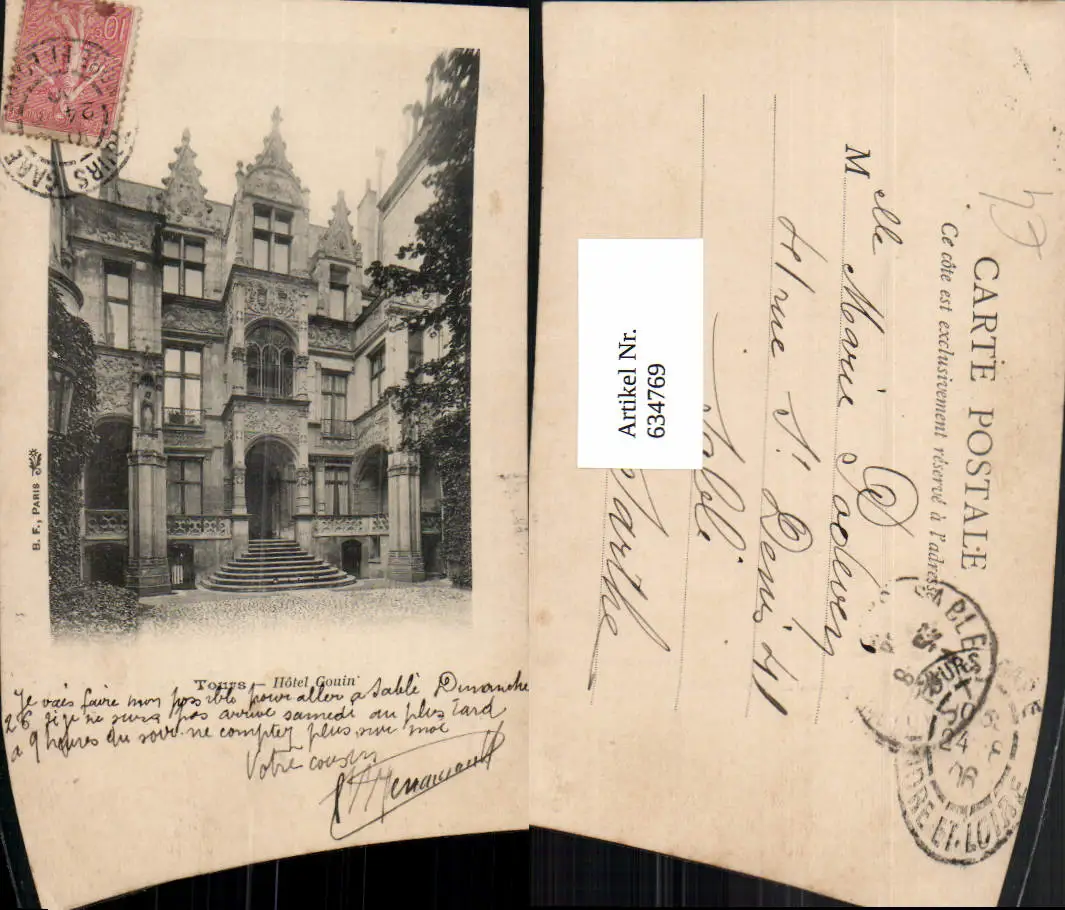 10c
TOURS GARE
B. F., PARIS
Tours — Hôtel Gouin
Je vais faire mon possible pour aller à Sablé Dimanche
26 si je ne suis pas arrivé samedi au plus tard
à 9 heures du soir ne comptez plus sur moi
Votre cousin
CARTE POSTALE
Ce côté est exclusivement réservé à l'adresse
Melle Marie
St Denis 41
Sablé
Sarthe
SABLE
TOURS
24
06
INDRE-ET-LOIRE
Artikel Nr.
634769